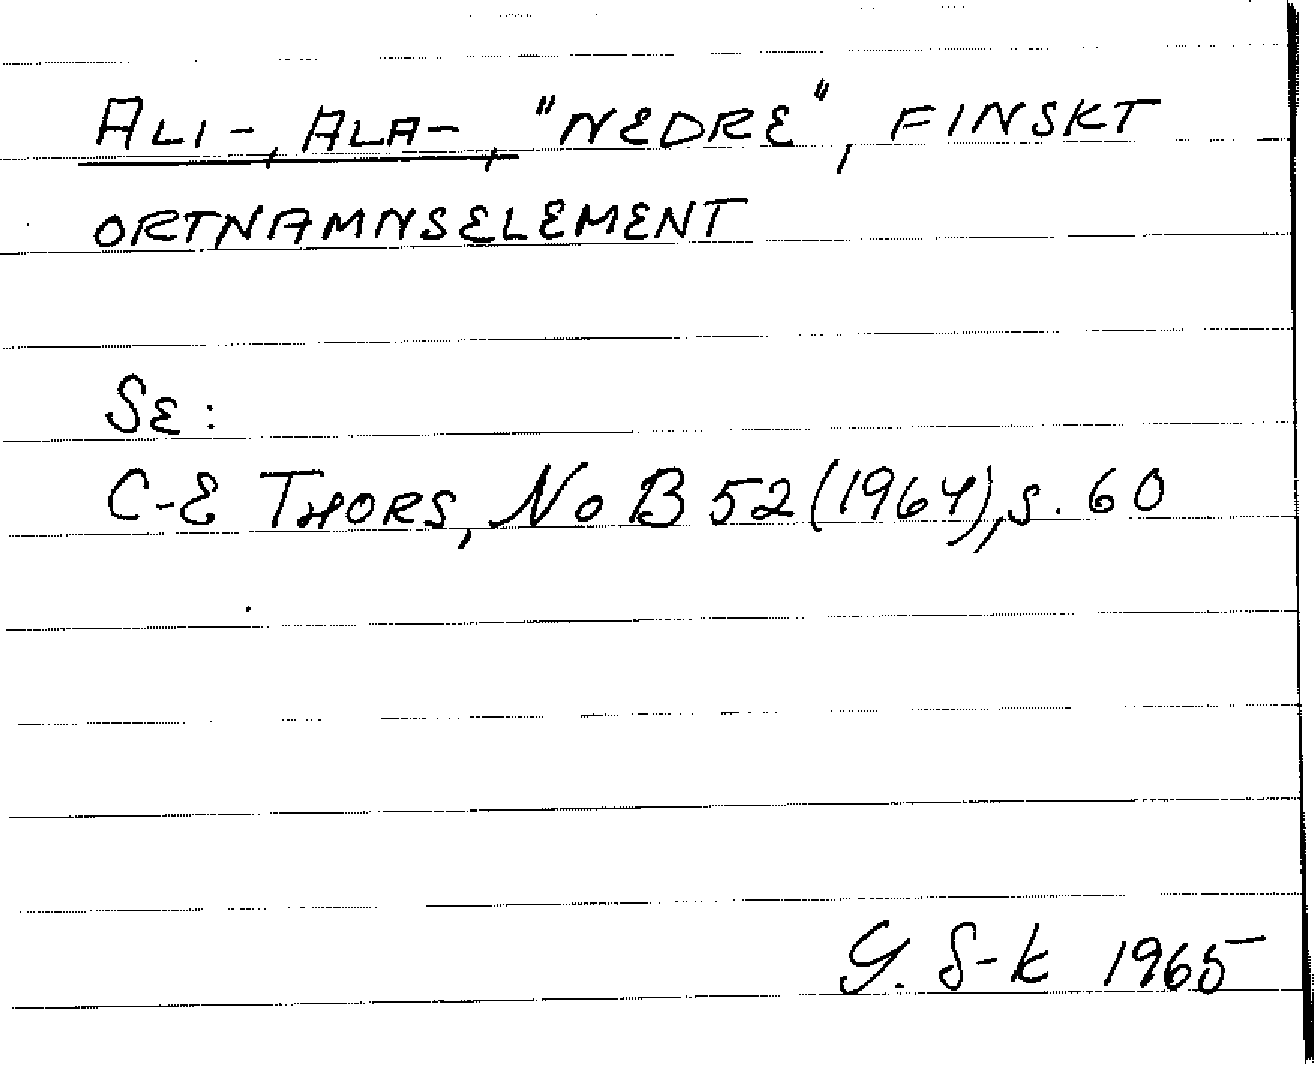 ALI-, ALA-, "NEDRE", FINSKT
ORTNAMNSELEMENT
SE:
C-E THORS, NoB 52 (1964), s. 60
G. S-k 1965